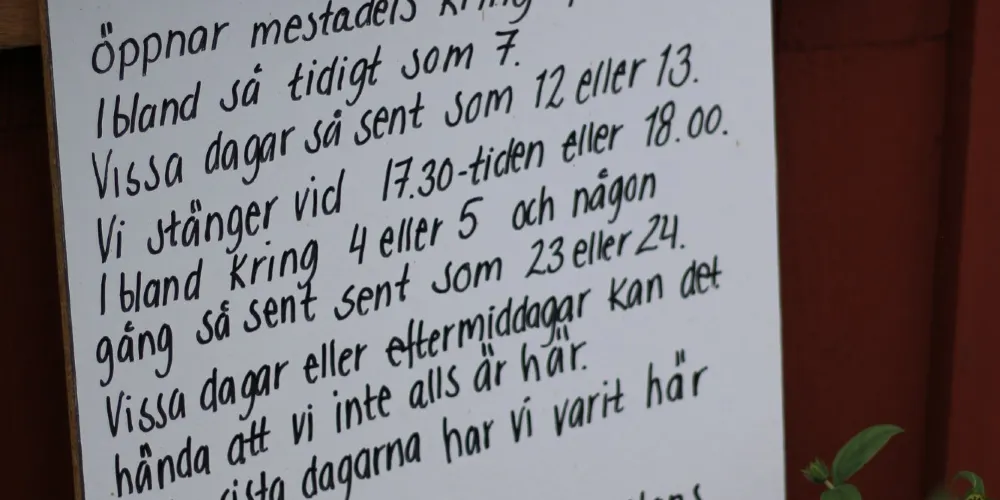 Öppnar mestadels kring
Ibland så tidigt som 7.
Vissa dagar så sent som 12 eller 13.
Vi stänger vid 17.30-tiden eller 18.00.
Ibland kring 4 eller 5 och någon
gång så sent sent som 23 eller 24.
Vissa dagar eller eftermiddagar kan det
hända att vi inte alls är här.
dagarna har vi varit här